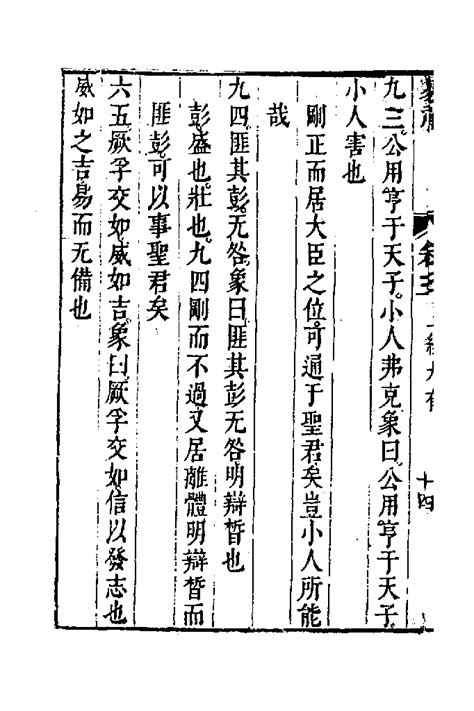 九三公用亨于天子小人弗克象曰公用亨于天子
小人害也
剛正而居大臣之位可通于聖君矣豈小人所能
哉
九四匪其彭无咎象曰匪其彭无咎明辯晢也
彭盛也壯也九四剛而不過又居離體明辯晢而
匪彭可以事聖君矣
六五厥孚交如威如吉象曰厥孚交如信以發志也
威如之吉易而无備也
十四